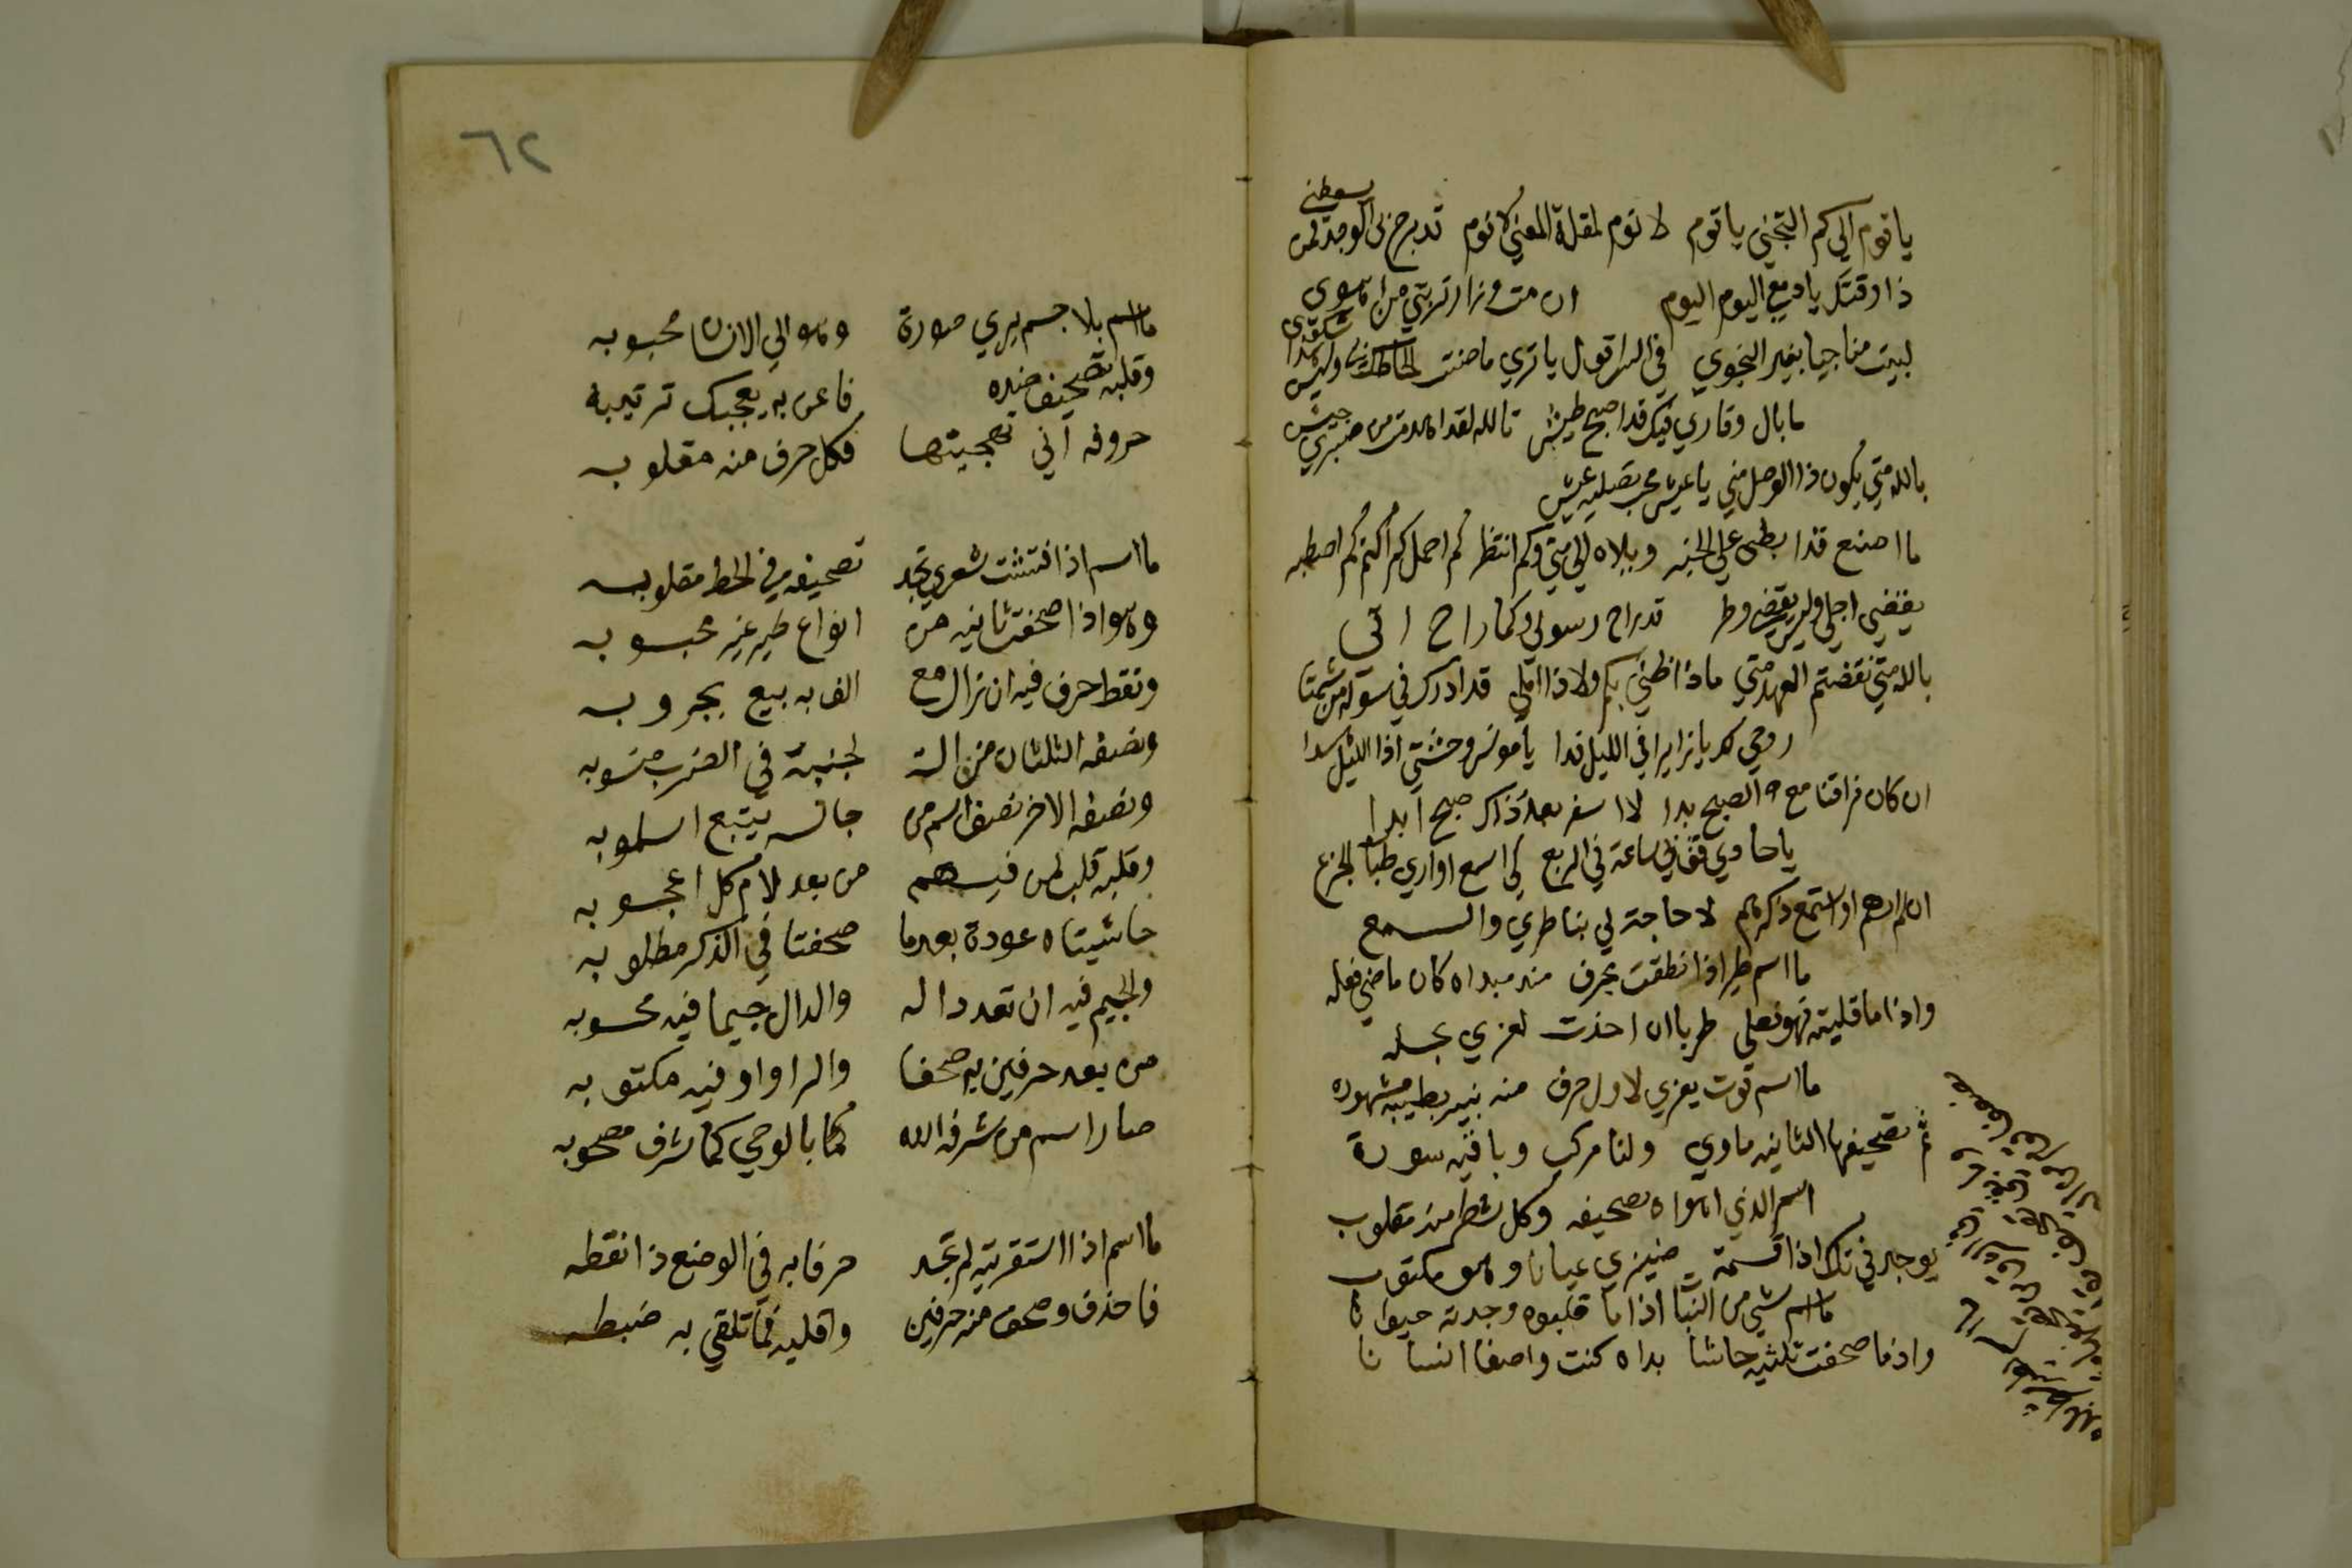 يا قوم الي كم التجني يا قوم لا نوم لمقلة المعني لا نوم قد برح بي الوجد فمن يسعطني
ذا وقتك يا دمع اليوم اليوم ان مت وزار تربتي من اهوي
لبيت مناجيا بغير النجوي في السر اقول يا تري ما صنعت الحاظك بي وليس هذا شكوي
ما بال وقاري فيك قد اصبح طيش تالله لقد هزمت من صبري جيش
بالله متي يكون ذا الوصل متي يا عيش محب تصليه عيش
ما اصنع قد ابطي علي الخبر ويلاه الي متي وكم انتظر كم احمل كم اكتم كم اصطبر
يقضي اجلي وليس يقضي وطر قد راح رسولي وكما راح اتي
بالله متي نقضتم العهد متي ماذا ظني بكم ولا ذا املي قد ادرك في سؤله من شمتا
روحي لك يا زايرا في الليل فدا يا مونس وحشتي اذا الليل هدا
ان كان فراقنا مع الصبح بدا لا اسفر بعد ذاك صبح ابدا
يا حادي قف بي ساعة في الربع كي اسمع او اري ظبا الجزع
ان لم ارهم او استمع ذكرهم لا حاجة لي بناظري والسمع
ما اسم طير اذا نطقت بحرف منه مبداه كان ماضي فعله
واذا ما قلبته فهو فعلي طربا ان اخذت لغزي بحله
ما اسم قوت يعزي لاول حرف منه بئر بطيبة مشهوره
ثم تصحيفها لثانيه ماوي ولنا مركب وباقيه سورة
اسم الذي اهواه تصحيفه وكل شطر منه مقلوب
يوجد في تلك اذا قسمة ضيزي عيانا وهو مكتوب
ما اسم شي من النبات اذا ما قلبوه وجدته حيوانا
واذا ما صحفت ثلثيه حاشا بداه كنت واصفا انسانا
٦٢
ما اسم بلا جسم يري صورة وهو الي الانسان محبوبه
وقلبه تصحيف ضده فاعن به يعجبك ترتيبه
حروفه اني تهجيتها فكل حرف منه مقلوبه
ما اسم اذا فتشت شعري تجد تصحيفه في الخط مقلوبه
وهو اذا صحفت ثانيه من انواع طير غير محبوبه
ونقط حرف فيه ان زال مع الف به بيع بخروبه
ونصفه الثلثان من الة لجنسه في الضرب منسوبه
ونصفه الاخر نصف اسم من جانسه يتبع اسلوبه
وقلبه قلب لمن فيهم من بعد لام كل اعجوبه
حاشيتاه عودة بعدما صحفتا في الذكر مطلوبه
والجيم فيه ان تعد داله والدال جيما فيه محسوبه
من بعد حرفين به صحفا والرا واو فيه مكتوبه
صار اسم من شرفه الله كما بالوحي كما شرف مصحوبه
ما اسم اذا استقريته لم تجد حرفا به في الوضع ذا نقطه
فاحذف وصحف منه حرفين واقلبه فما تلقي به ضبطه